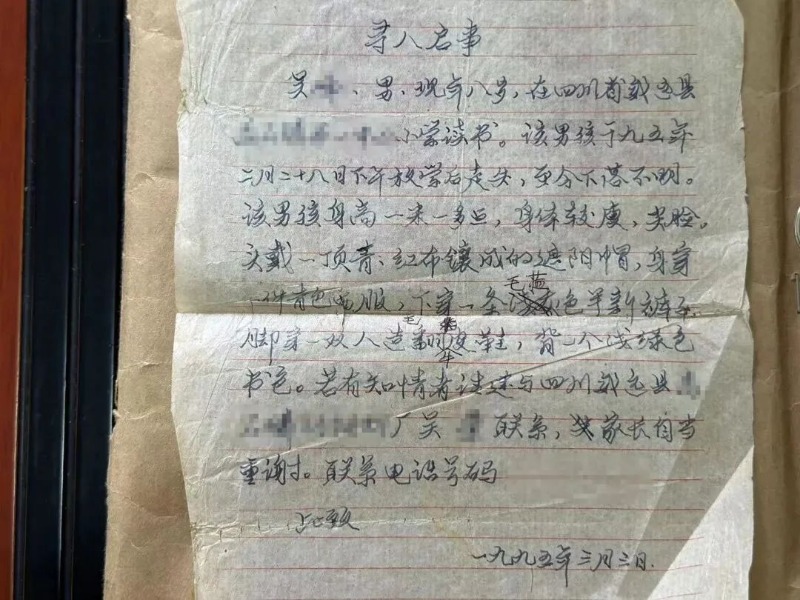 寻人启事
吴 、男、现年八岁，在四川省威远县
小学读书。该男孩于九五年
二月二十八日下午放学后走失，至今下落不明。
该男孩身高一米一多点，身体较瘦，尖脸。
头戴一顶青、红布镶成的遮阳帽，身穿
一件青色衣服，下穿一条毛蓝色半新裤子
脚穿一双人造毛 皮鞋，背一个浅绿色
书包。若有知情者请速与四川威远县
厂吴 联系，家长自当
重谢。联系电话号码
此致
一九九五年三月三日.